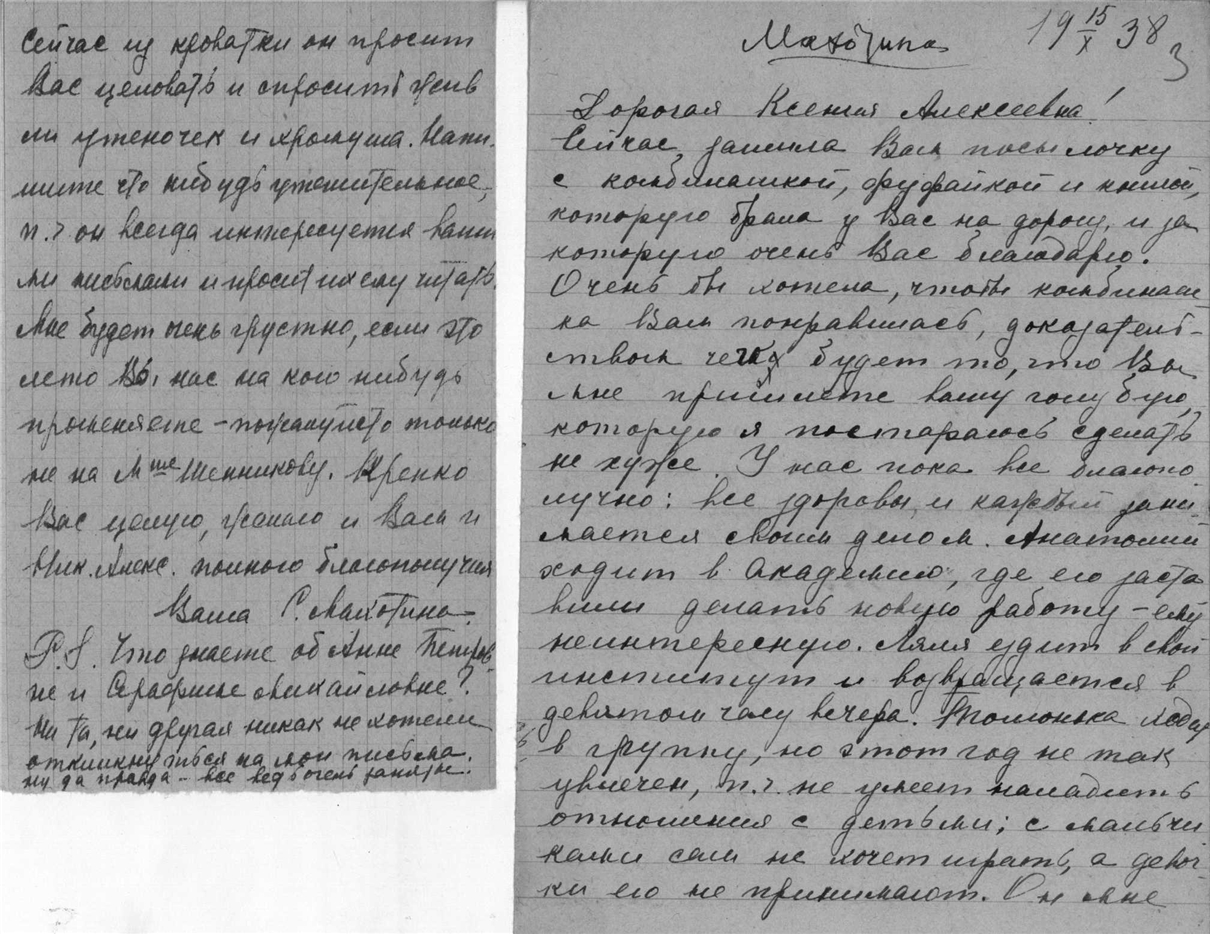 Махотина
19 15/X 38
3
Дорогая Ксения Алексеевна!
Сейчас зашила Вам посылочку
с комбинашкой, фуфайкой и книгой,
которую брала у Вас на дорогу, и за
которую очень Вас благодарю.
Очень бы хотела, чтобы комбинаш-
ка Вам понравилась, доказатель-
ством чего будет то, что Вы
мне пришлете вашу голубую,
которую я постараюсь сделать
не хуже. У нас пока все благопо
лучно: все здоровы, и каждый зани
мается своим делом. Анатолий
ходит в Академию, где его заста
вили делать новую работу – ему
неинтересную. Ляля ездит в свой
институт и возвращается в
девятом часу вечера. Томонька ходит
в группу, но этот год не так
увлечен, т.ч. не умеет наладить
отношения с детьми; с мальчи
ками сам не хочет играть, а девоч-
ки его не принимают. Он мне
Сейчас из кроватки он просит
Вас целовать и спросить жив
ли утеночек и хромуша. Напи-
шите что нибудь утешительное,
т.ч он всегда интересуется ваши
ми письмами и просит их ему читать.
Мне будет очень грустно, если это
лето Вы нас на кого нибудь
променяете – пожалуйста только
не на Мme Шенникову. Крепко
Вас целую, желаю и Вам и
Ник. Алекс. полного благополучия
Ваша С. Махотина.
P.S. Что знаете об Анне Петров-
не и Серафиме Михайловне?
Ни та, ни другая никак не хотели
откликнуться на мои письма.
ну да правда – все ведь очень заняты.